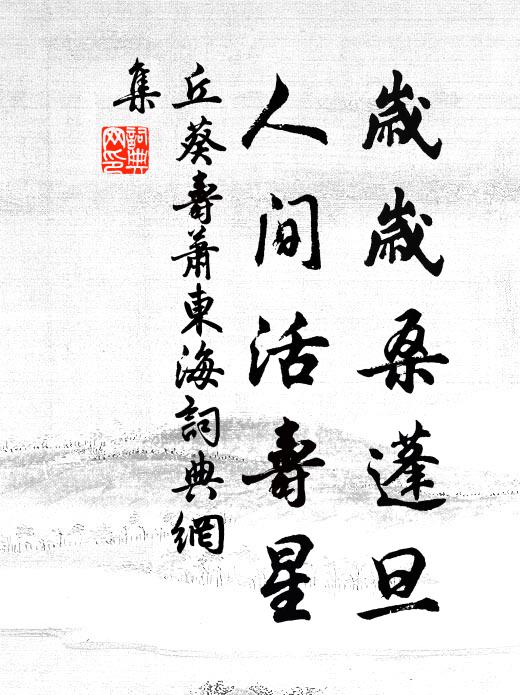 歲歲桑蓬旦
人間活壽星
丘葵壽蕭東海詞典網
集
詞典
网印